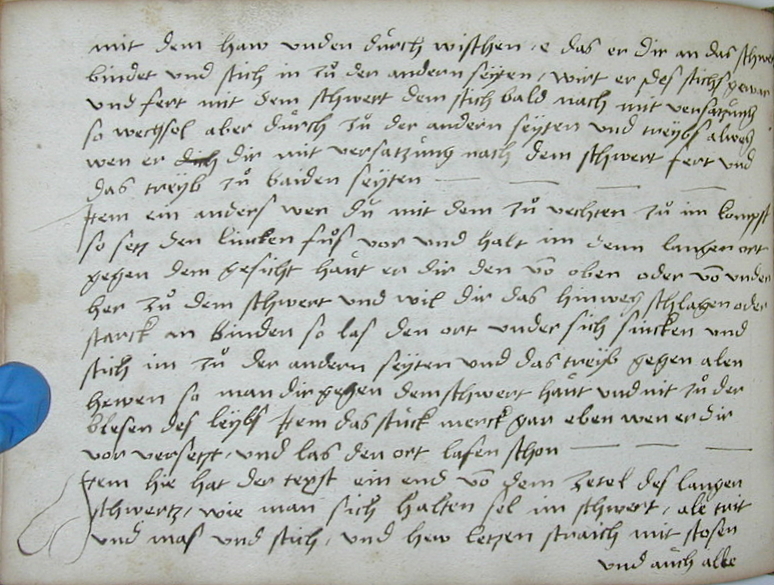 mit dem haw vnden durch wischen e das er dir an das schwer
bindet vnd stich in zů der andern seyten, wirt er des stichs gewar
vnd fert mit dem schwert dem stich bald nach mit versatzung
so wechsel aber durch zů der andern seyten vnd treybs alweg
wen er dir mit versatzung nach dem schwert fert vnd
das treyb zů baiden seyten
Item ein anders wen du mit dem zů vechten zů im kompst
so setz den lincken fůs vor vnd halt im denn langen ort
gegen dem gesicht haut er dir den võ oben oder võ vnden
her zů dem schwert vnd wil dir das hinweg schlagen oder
starck an binden so las den ort vnder sich sincken vnd
stich im zů der andern seyten vnd das treyb gegen alen
hewen so man dir gegen dem schwert haut vnd nit zů der
blesen des leybs Item das stuck merck gar eben wen er dir
vor versetzt, vnd las den ort lasen schon
Item hie hat der text ein end võ dem zetel des langen
schwertz, wie man sich halten sol im schwert, ale trit
vnd mas vnd stich, vnd hew letzen straich mit stosen
vnd auch alle